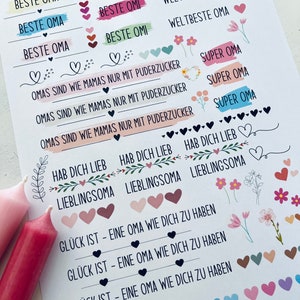 BESTE OMA
BESTE OMI
WELTBESTE OMA
BESTE OMA
BESTE OMI
WELTBESTE OMA
BESTE OMA
BESTE OMI
OMAS SIND WIE MAMAS NUR MIT PUDERZUCKER
SUPER OMA
OMAS SIND WIE MAMAS NUR MIT PUDERZUCKER
SUPER OMA
OMAS SIND WIE MAMAS NUR MIT PUDERZUCKER
SUPER OMA
HAB DICH LIEB HAB DICH LIEB HAB DICH LIEB
LIEBLINGSOMA LIEBLINGSOMA LIEBLINGSOMA
GLÜCK IST - EINE OMA WIE DICH ZU HABEN
GLÜCK IST - EINE OMA WIE DICH ZU HABEN
GLÜCK IST - EINE OMA WIE DICH ZU HABEN